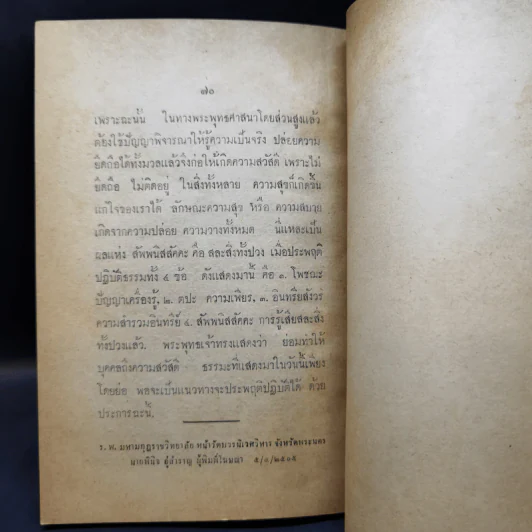 ๗๐
เพราะฉะนั้น ในทางพระพุทธศาสนาโดยส่วนสูงแล้ว
ต้องใช้ปัญญาพิจารณาให้รู้ความเป็นจริง ปล่อยความ
ยึดถือได้ทั้งมวลแล้วจึงก่อให้เกิดความสวัสดี เพราะไม่
ยึดถือ ไม่ติดอยู่ ในสิ่งทั้งหลาย ความสุขก็เกิดขึ้น
แก่ใจของเราได้ ลักษณะความสุข หรือ ความสบาย
เกิดจากความปล่อย ความวางทั้งหมด นี่แหละเป็น
ผลแห่ง สัพพนิสสัคคะ คือ สละสิ่งทั้งปวง เมื่อประพฤติ
ปฏิบัติธรรมทั้ง ๔ ข้อ ดังแสดงมานี้ คือ ๑. โพชฌะ
ปัญญาเครื่องรู้, ๒. ตปะ ความเพียร, ๓. อินทรียสังวร
ความสำรวมอินทรีย์ ๔. สัพพนิสสัคคะ การรู้เสียสละสิ่ง
ทั้งปวงแล้ว. พระพุทธเจ้าทรงแสดงว่า ย่อมทำให้
บุคคลถึงความสวัสดี ธรรมะที่แสดงมาในวันนี้เพียง
โดยย่อ พอจะเป็นแนวทางจะประพฤติปฏิบัติได้ ด้วย
ประการฉะนี้.
ร. พ. มหามกุฏราชวิทยาลัย หน้าวัดบวรนิเวศวิหาร จังหวัดพระนคร
นายพินิจ อู่สำราญ ผู้พิมพ์โฆษณา ๕/๑/๒๕๐๕